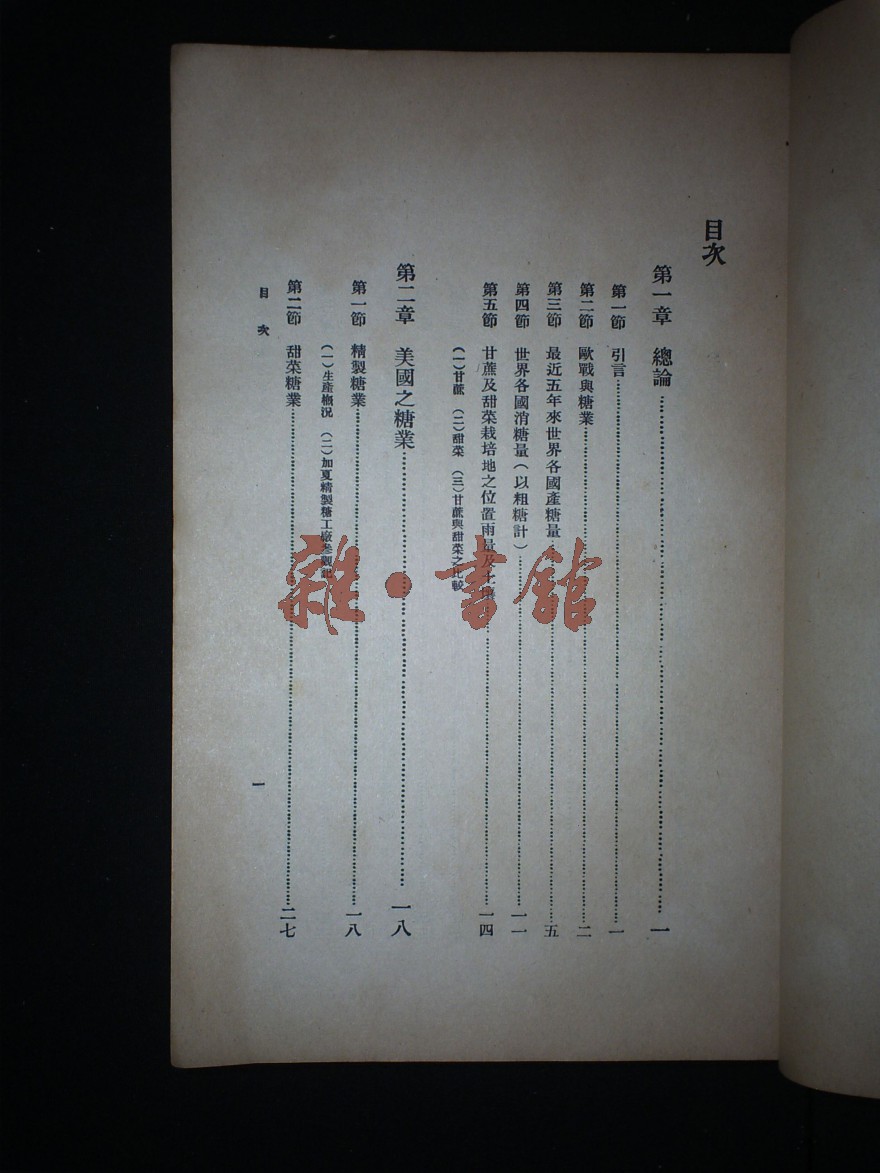 目次
第一章 總論 一
第一節 引言 一
第二節 歐戰與糖業 二
第三節 最近五年來世界各國產糖量 五
第四節 世界各國消糖量(以粗糖計) 一一
第五節 甘蔗及甜菜栽培地之位置雨量及土壤 一四
(一)甘蔗 (二)甜菜 (三)甘蔗與甜菜之比較
第二章 美國之糖業 一八
第一節 精製糖業 一八
(一)生產槪況 (二)加夏精製糖工廠參觀記
第二節 甜菜糖業 二七
目次 一
雜·書館